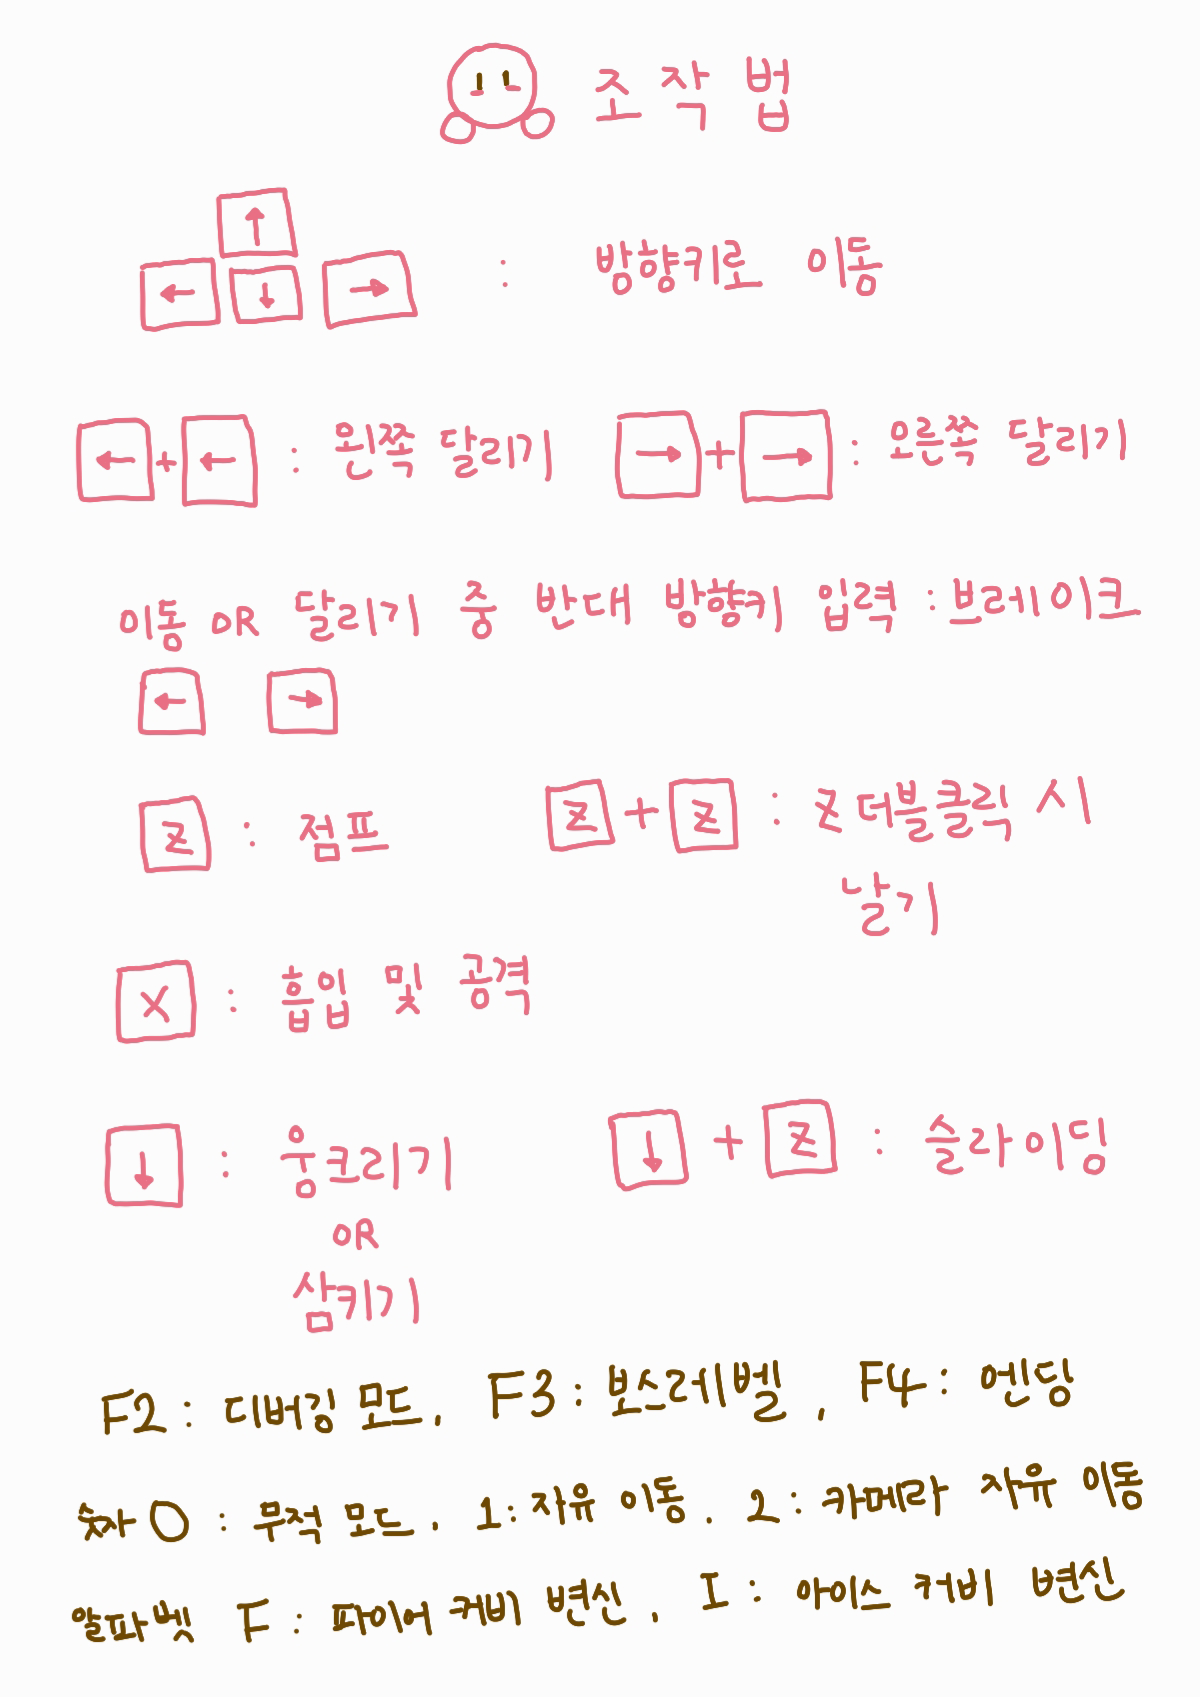 조작법
↑
← ↓ → : 방향키로 이동
← + ← : 왼쪽 달리기 → + → : 오른쪽 달리기
이동 OR 달리기 중 반대 방향키 입력 : 브레이크
← →
Z : 점프 Z + Z : Z 더블클릭 시
날기
X : 흡입 및 공격
↓ : 웅크리기 ↓ + Z : 슬라이딩
OR
삼키기
F2 : 디버깅 모드, F3 : 보스레벨, F4 : 엔딩
숫자 0 : 무적 모드, 1 : 자유 이동, 2 : 카메라 자유 이동
알파벳 F : 파이어 커비 변신, I : 아이스 커비 변신